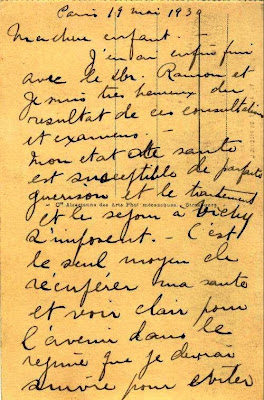 Paris 19 mai 1939
Mon cher enfant.
J'en ai enfin fini
avec le Dr. Ramon et
je suis très heureux du
resultat de ces consultations
et examens.
Mon etat de santé
est susceptible de parfaite
guerison et le traitement
et le sejour a Vichy
Cie Alsacienne des Arts Photomécaniques, Strasbourg
s'imposent. C'est
le seul moyen de
récupérer ma santé
et voir clair pour
l'avenir dans le
regime que je devrai
suivre pour eviter